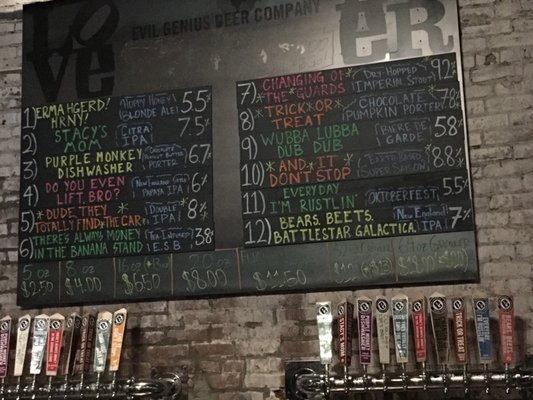 LOVE
EVIL GENIUS BEER COMPANY
BEER
1) ERMAHGERD! HRNY! [HOPPY HONEY BLONDE ALE] 5.5%
2) STACY'S MOM [CITRA IPA] 7.5%
3) PURPLE MONKEY DISHWASHER [CHOCOLATE PEANUT BUTTER PORTER] 6.7%
4) DO YOU EVEN LIFT, BRO? [NEW ENGLAND PAPAYA IPA] 6%
5) *DUDE, THEY TOTALLY FIND THE CAR* [DOUBLE IPA] 8%
6) THERE'S ALWAYS MONEY IN THE BANANA STAND E.S.B. 3.8%
7) CHANGING OF *THE GUARDS* [DRY HOPPED IMPERIAL STOUT] 9.2%
8) *TRICK* OR TREAT [CHOCOLATE PUMPKIN PORTER]
9) WUBBA LUBBA DUB DUB [BIERE DE GARDE] 5.8%
10) *AND* IT DON'T STOP SUPER SAISON 8.8%
11) EVERYDAY I'M RUSTLIN' [OKTOBERFEST] 5.5%
12) BEARS. BEETS. BATTLESTAR GALACTICA. [NEW ENGLAND IPA] 7%
5 oz 8 oz
$2.50 $4.00 $6.50 $8.00 $11.50